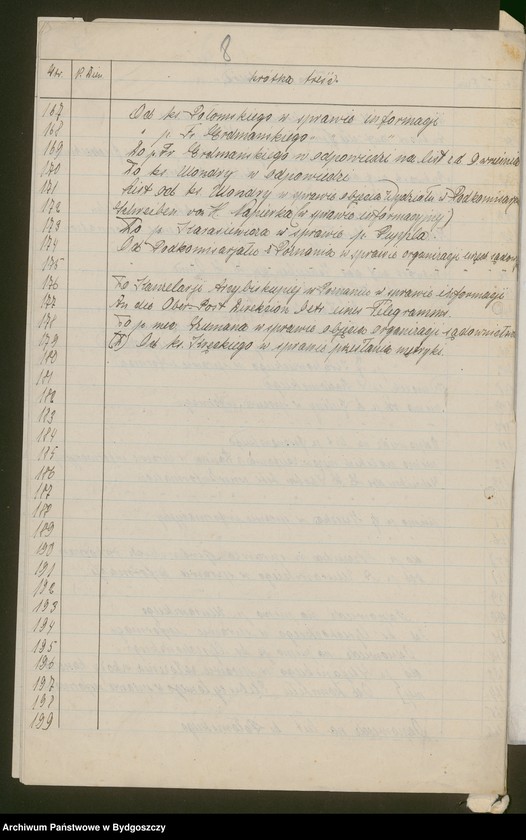 8
Nr. R. Dzien. krótka treść.
167 Od ks. Połomskiego w sprawie informacji
168 " p. Fr. Erdmańskiego.
169 Do p. Fr. Erdmańskiego w odpowiedzi na list z d. 9 września
170 Do ks. Mondry w odpowiedzi
171 List od ks. Mondry w sprawie objęcia Wydziału w Podkomisarja
172 Schreiben von H. Napierka (w sprawie informacyjny)
173 Do p. Karasiewicza w sprawie p.
174 Od Podkomisarjatu w Poznaniu w sprawie organizacji
175
176 Do Kancelarji Arcybiskupiej w Poznaniu w sprawie informacji
177 An die Ober-Post Direktion betr. eines Telegramms.
178 Do p. mec. Szumana w sprawie objęcia organizacji sądownictwa
179 Od ks. w sprawie przesłania metryki.
180
181
182
183
184
185
186
187
188
189
190
191
192
193
194
195
196
197
198
199
Archiwum Państwowe w Bydgoszczy